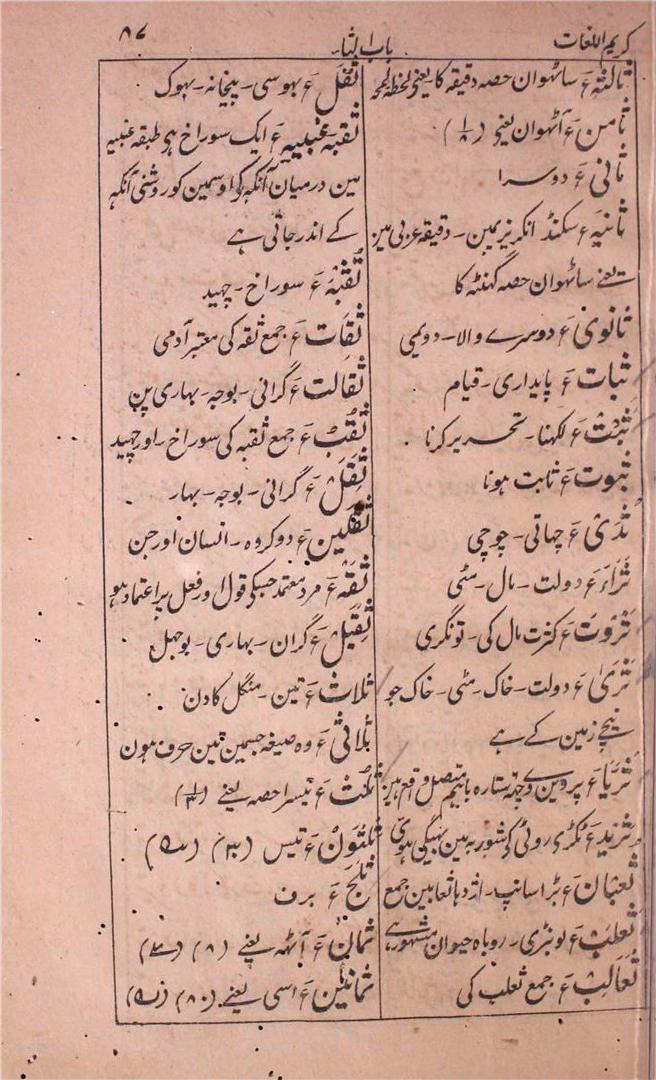 کریم اللغات
باب الثاء
۸۷
ثالثہ ع ساٹھوان حصہ دقیقہ کا یعنی لحظہ لمحہ
ثامن ع آٹھوان یعنی (۱/۸)
ثانی ع دوسرا
ثانیہ ع سکنڈ انگریزیمین - دقیقہ عربی مین
یعنے ساٹھوان حصہ گھنٹہ کا
ثانوی ع دوسرے والا - دویمی
ثبات ع پایداری - قیام
ثبت ع لکھنا - تحریر کرنا
ثبوت ع ثابت ہونا
ثدی ع چھاتی - چوچی
ثراء ع دولت - مال - مٹی
ثروت ع کثرت مال کی - تونگری
ثری ع دولت - خاک - مٹی - خاک جو
نیچے زمین کے ہے
ثریا ع پروین وچند ستارہ باہم متصل واقع ہین
ثرید ع ٹکڑی روٹی کی شوربہ مین بھیگی ہوئی
ثعبان ع بڑا سانپ - اژدہا ثعابین جمع
ثعلب ع لونبڑی - روباہ حیوان مشہور ہے
ثعالب ع جمع ثعلب کی
ثفل ع بھوسی - پیخانہ - پھوک
ثقبہ عنبیہ ع ایک سوراخ ہی طبقہ عنبیہ
مین درمیان آنکھ کی اوسمین کو روشنی آنکھ
کے اندر جاتی ہے
ثقبہ ع سوراخ - چھید
ثقات ع جمع ثقہ کی معتبر آدمی
ثقالت ع گرانی - بوجھ - بھاری پن
ثقب ع جمع ثقبہ کی سوراخ - اور چھید
ثقل ع گرانی - بوجھ - بھار
ثقلین ع دو گروہ - انسان اور جن
ثقہ ع مرد معتمد جسکی قول اور فعل پر اعتماد ہو
ثقیل ع گران - بھاری - بوجھل
ثلاث ع تین - منگل کا دن
ثلاثی ع وہ صیغہ جسمین تین حرف ہون
ثلث ع تیسرا حصہ یعنے (۱/۳)
ثلثون ع تیس (۳۰)
ثلج ع برف
ثمان ع آٹھ یعنے (۸)
ثمانین ع اسی یعنے (۸۰)